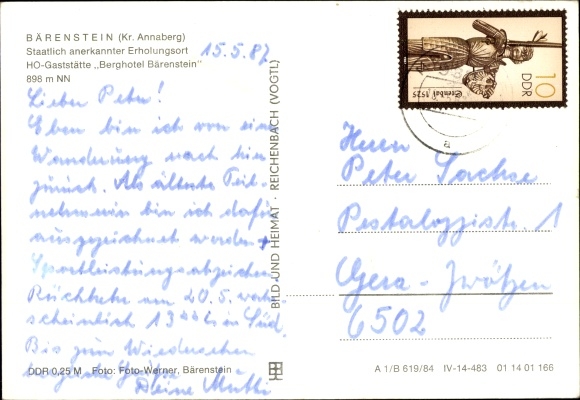 BÄRENSTEIN (Kr. Annaberg)
Staatlich anerkannter Erholungsort
HO-Gaststätte „Berghotel Bärenstein"
898 m NN
15.5.87
Lieber Peter!
Eben bin ich von einer
Wanderung nach hier
zurück. Als älteste Teil-
nehmerin bin ich dafür
ausgezeichnet worden +
Sportleistungsabzeichen
Rückkehr am 20.5. wahr-
scheinlich 13⁴⁴ h in Süd.
Bis zum Wiedersehen
herzliche Grüße
Deine Mutti
DDR 0,25 M Foto: Foto-Werner, Bärenstein
BILD UND HEIMAT · REICHENBACH (VOGTL)
10
DDR
Stendal 1525
a
Herrn
Peter Sachse
Pestalozzistr. 1
Gera - Zwötzen
6502
A 1/B 619/84 IV-14-483 01 14 01 166